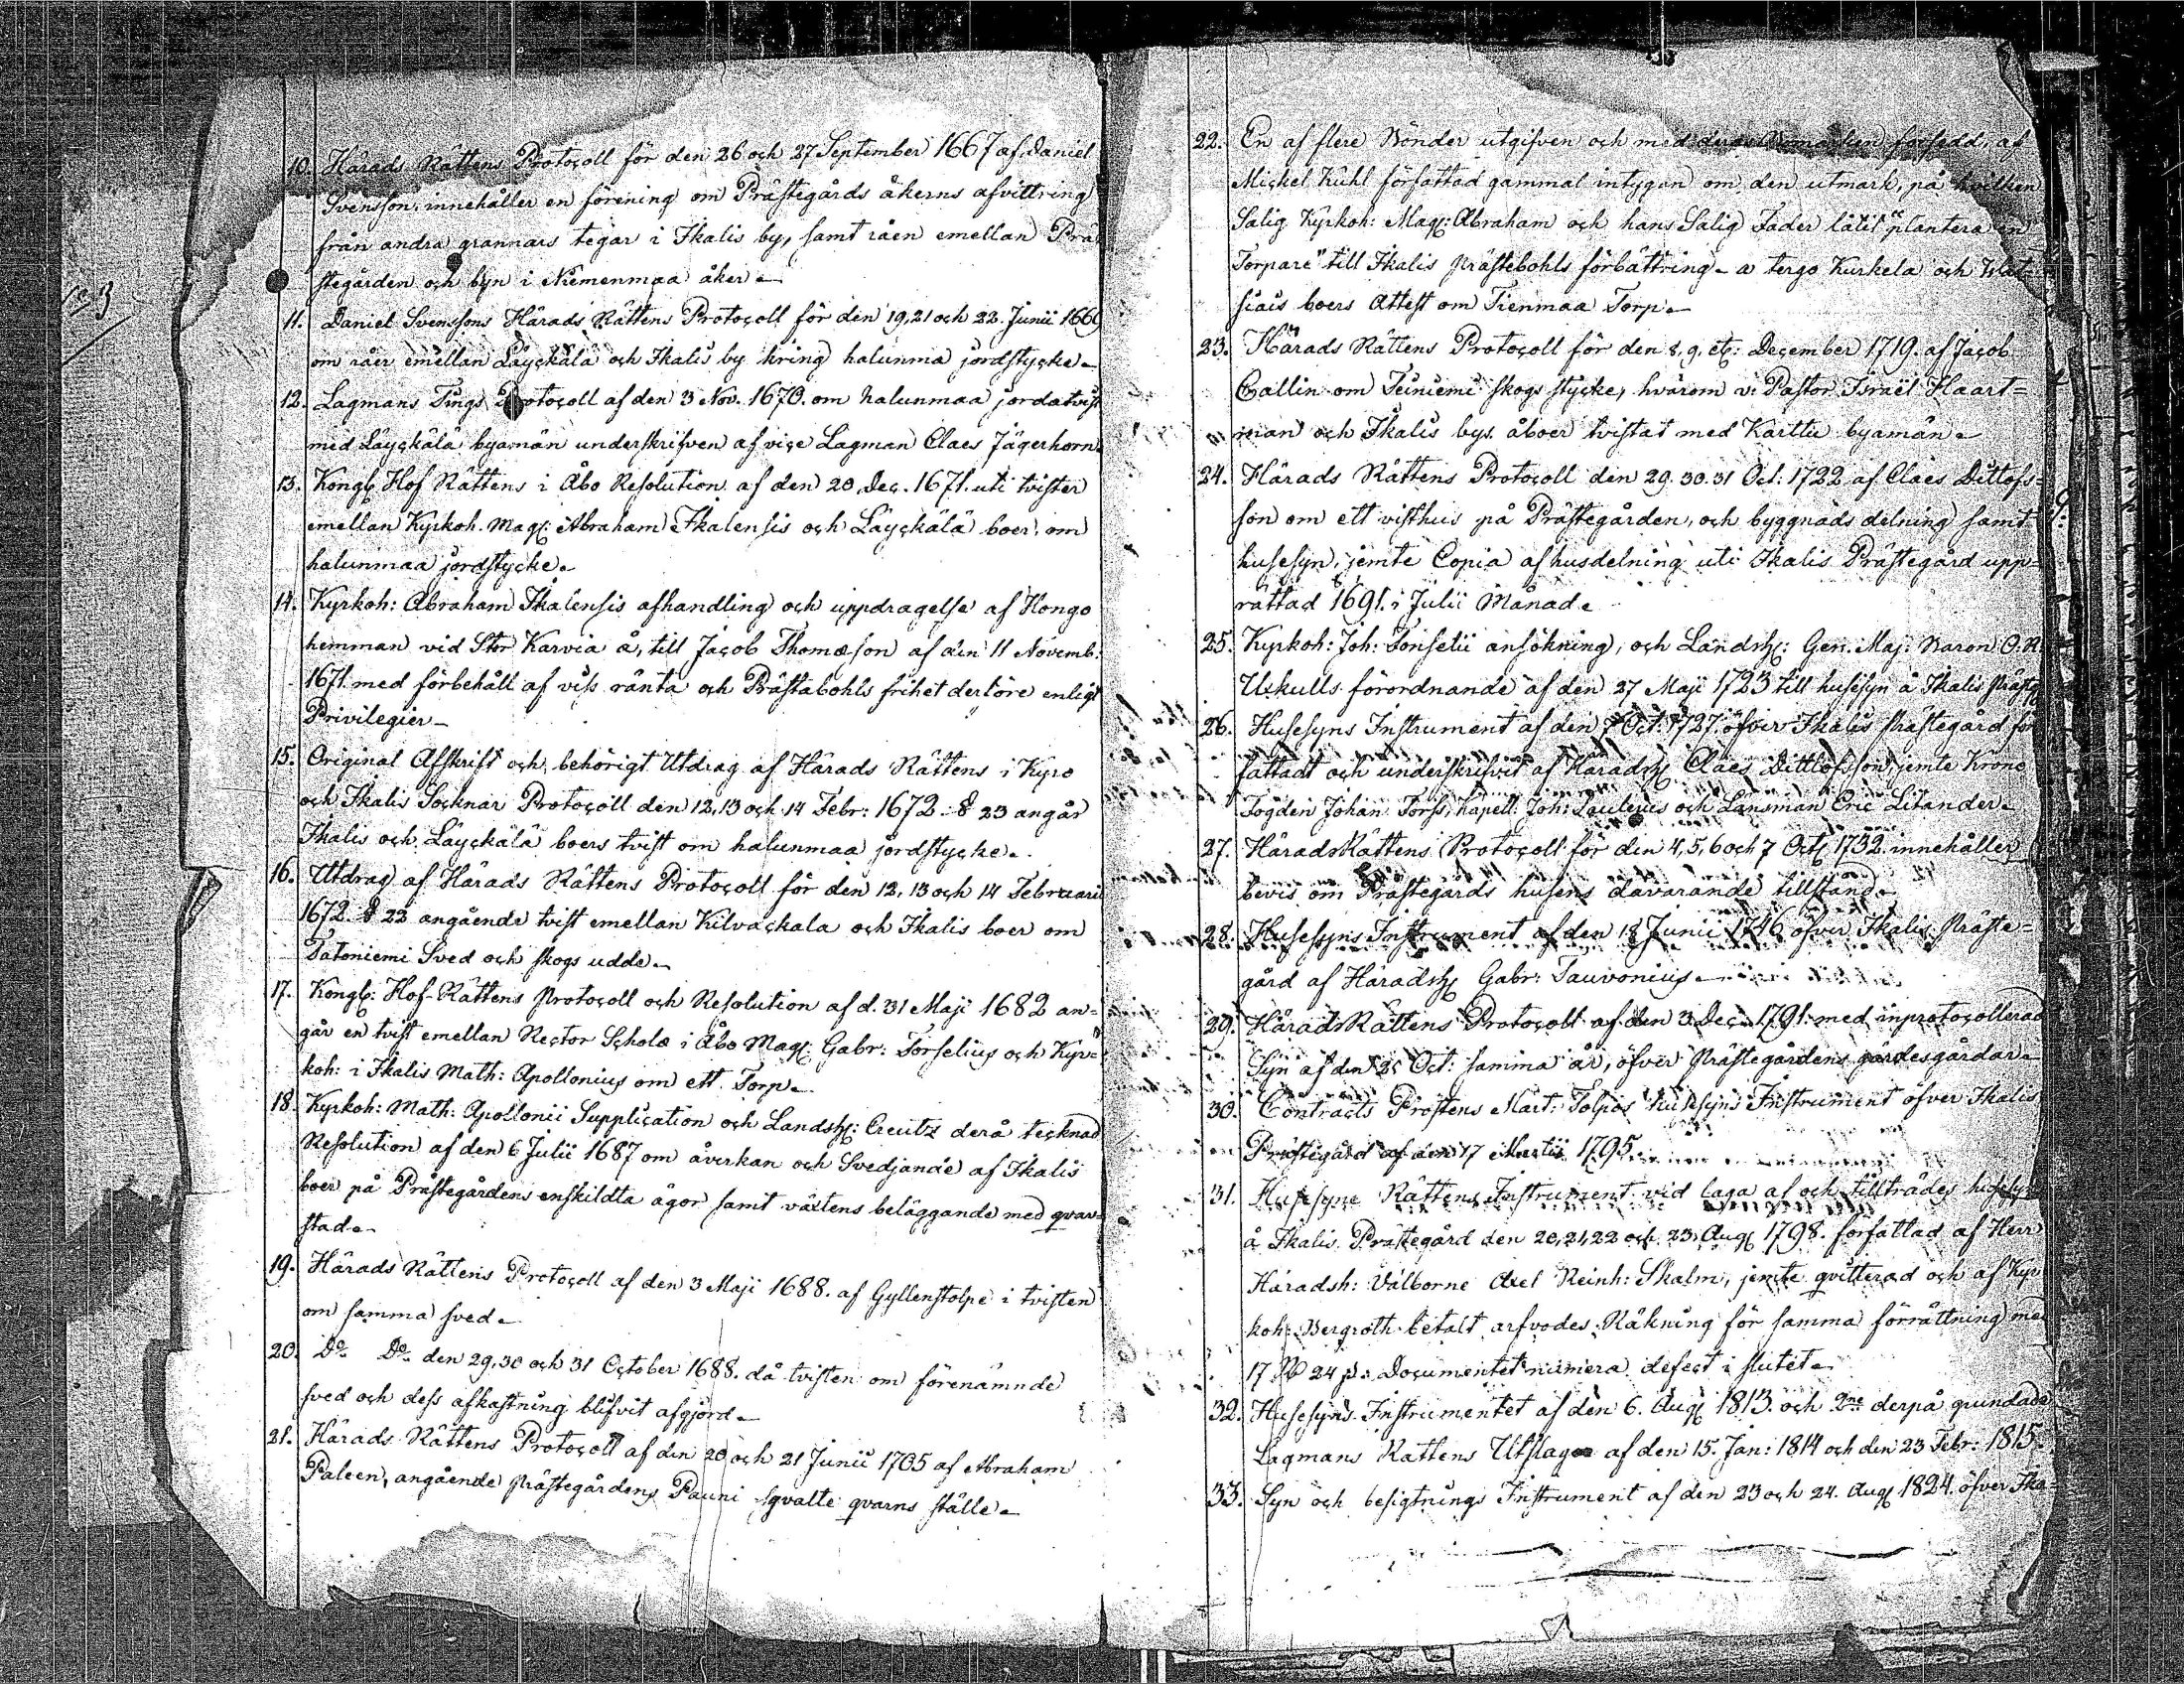 10. Härads Rättens Protocoll för den 26 och 27 September 1667 af Daniel
Svensson, innehåller en förening om Prästegårds åkerns afvittring
från andra grannars tegar i Ikalis by, samt råen emellan Prä-
stegården och byn i Niemenmaa åker.
11. Daniel Svenssons Härads Rättens Protocoll för den 19, 21 och 22. Junii 1669
om råer emellan Läyckälä och Ikalis by kring halunma jordstycke.
12. Lagmans Tings Protocoll af den 3 Nov. 1670. om halunmaa jordatvist
med Läyckälä byamän underskrifven af vice Lagman Claes Jägerhorn.
13. Kongl. Hof Rättens i Åbo Resolution af den 20 Dec. 1671. uti tvister
emellan Kyrkoh. Mag: Abraham Ikalensis och Läyckälä boer, om
halunmaa jordstycke.
14. Kyrkoh: Abraham Ikalensis afhandling och uppdragelse af Hongo
hemman vid Stor Karvia å, till Jacob Thomæson af den 11 Novemb:
1671. med förbehåll af viss ränta och Prästabohls frihet derföre enligt
Privilegier
15. Original Afskrift och behörigt Utdrag af Härads Rättens i Kyro
och Ikalis Socknar Protocoll den 12, 13 och 14 Febr: 1672 § 23 angår
Ikalis och Läyckälä boers tvist om halunmaa jordstycke.
16. Utdrag af Härads Rättens Protocoll för den 12, 13 och 14 Februarii
1672. § 22 angående tvist emellan Kilvackala och Ikalis boer om
Tatoniemi Sved och skogs udde.
17. Kongl: Hof-Rättens Protocoll och Resolution af d. 31 Maji 1682 an=
går en tvist emellan Rector Scholæ i Åbo Mag: Gabr: Forselius och Kyr=
koh: i Ikalis Math: Apollonius om ett Torp.
18. Kyrkoh: Math: Apollonii Supplication och Landsh: Creutz derå tecknad
Resolution af den 6 Julii 1687 om åverkan och Svedjande af Ikalis
boer på Prästegårdens enskildta ägor samt växtens beläggande med qvar=
stad.
19. Härads Rättens Protocoll af den 3 Maji 1688. af Gyllenstolpe i tvisten
om samma sved.
20. Do Do den 29, 30 och 31 October 1688. då tvisten om förenämnde
sved och dess afkastning blifvit afgjord.
21. Härads Rättens Protocoll af den 20 och 21 Junii 1705 af Abraham
Paleen, angående Prästegårdens Pauni sqvalte qvarns ställe.
22. En af flere Bönder utgifven och med deras Bomärken försedd, af
Mickel Kuhl författad gammal intygan om den utmark, på hvilken
Salig Kyrkoh: Mag: Abraham och hans Salig Fader låtit "plantera en
Torpare" till Ikalis Prästebohls förbättring - a tergo Kurkela och
boers Attest om Tienmaa Torp.
23. Härads Rättens Protocoll för den 8, 9, etc: December 1719. af Jacob
Callin om Teiniemi skogs stycke, hvarom v: Pastor Israël Haart=
man och Ikalis bys åboer tvistat med Karttu byamän.
24. Härads Rättens Protocoll den 29. 30. 31 Oct: 1722 af Claes Dittofs=
son om ett visthus på Prästegården, och byggnads delning samt
husesyn, jemte Copia af husdelning uti Ikalis Prästegård upp=
rättad 1691. i Julii Månad.
25. Kyrkoh: Joh: Tonselii ansökning, och Landsh: Gen. Maj: Baron O. R.
Uxkulls förordnande af den 27 Maji 1723 till husesyn å Ikalis Prästg
26. Husesyns Instrument af den 7 Oct: 1727. öfver Ikalis Prästegård för
fattadt och underskrifvit af Häradsh: Claes Dittlofsson, jemte Krono
Fogden Johan Forss, Kapell: Joh: Paulinus och Länsman Eric Litander.
27. HäradsRättens Protocoll för den 4, 5, 6 och 7 Oct: 1732. innehåller
bevis om Prästegårds husens davarande tillstånd.
28. Husesyns Instrument af den 18 Junii 1746 öfver Ikalis Präste=
gård af Häradsh: Gabr: Tauvonius.
29. HäradsRättens Protocoll af den 3. Dec: 1791. med inprotocollerad
Syn af den 25 Oct: samma år, öfver Prästegårdens gärdesgårdar.
30. Contracts Prostens Mart: Tolpos husesyns Instrument öfver Ikalis
Prästegård af den 17 Martii 1795.
31. Husesyne Rättens Instrument vid laga af och tillträdes husesyn
å Ikalis Prästegård den 20, 21, 22 och 23. Aug: 1798. författad af Herr
Häradsh: Välborne Axel Reinh: Skalm, jemte qvitterad och af Kyr
koh: Bergroth betalt arfvodes Räkning för samma förrättning med
17 24 Documentet numera defect i slutet.
32. Husesyns Instrumentet af den 6. Aug: 1813. och 2ne derpå grundade
Lagmans Rättens Utslag af den 15. Jan: 1814 och den 23 Febr: 1815.
33. Syn och besigtnings Instrument af den 23 och 24. Aug: 1824. öfver Ika=